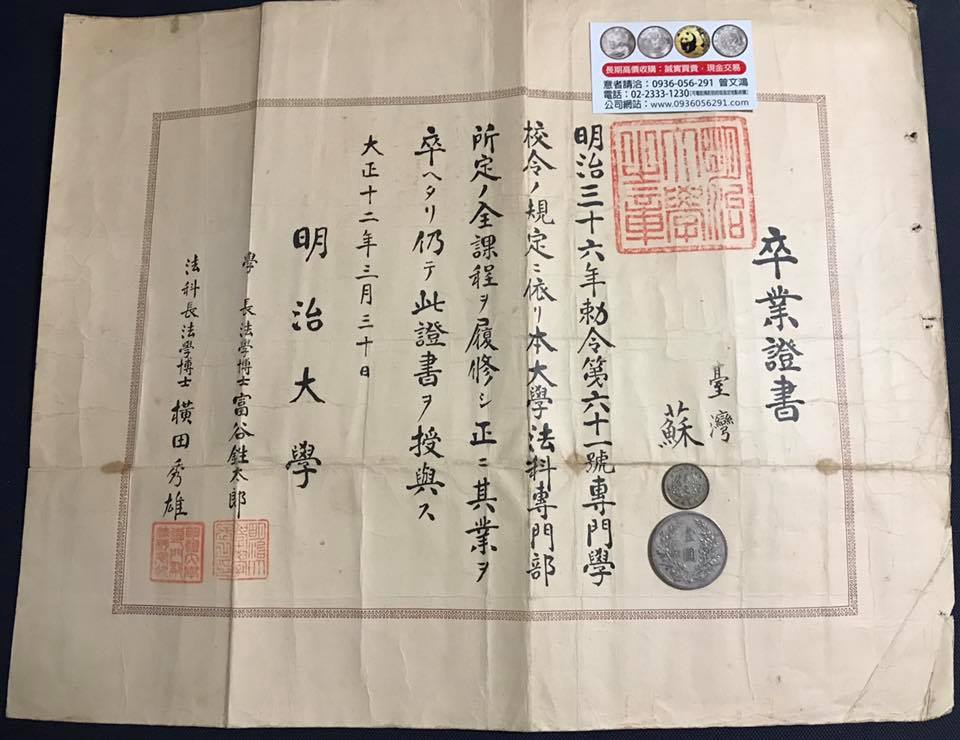 卒業證書
臺灣
蘇
明治三十六年勅令第六十一號專門學
校令ノ規定ニ依リ本大學法科專門部
所定ノ全課程ヲ履修シ正ニ其業ヲ
卒ヘタリ仍テ此證書ヲ授與ス
大正十二年三月三十日
明治大學
學長法學博士富谷鉎太郎
法科長法學博士橫田秀雄
明治大學之章
長期高價收購：誠實買賣，現金交易
意者請洽：0936-056-291 曾文鴻
電話：02-2333-1230
公司網站：www.0936056291.com
壹圓